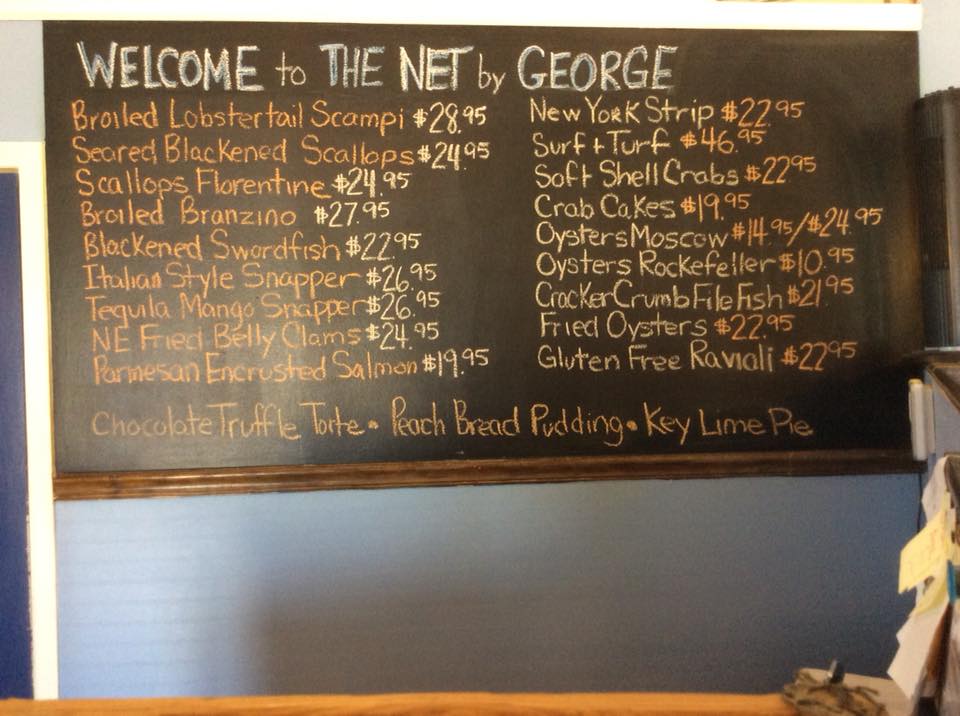 WELCOME to THE NET by GEORGE
Broiled Lobstertail Scampi $28.95
Seared Blackened Scallops $24.95
Scallops Florentine $24.95
Broiled Branzino $27.95
Blackened Swordfish $22.95
Italian Style Snapper $26.95
Tequila Mango Snapper $26.95
NE Fried Belly Clams $24.95
Parmesan Encrusted Salmon $19.95
New York Strip $22.95
Surf + Turf $46.95
Soft Shell Crabs $22.95
Crab Cakes $19.95
Oysters Moscow $14.95/$24.95
Oysters Rockefeller $10.95
Cracker Crumb File Fish $21.95
Fried Oysters $22.95
Gluten Free Raviali $22.95
Chocolate Truffle Torte • Peach Bread Pudding • Key Lime Pie